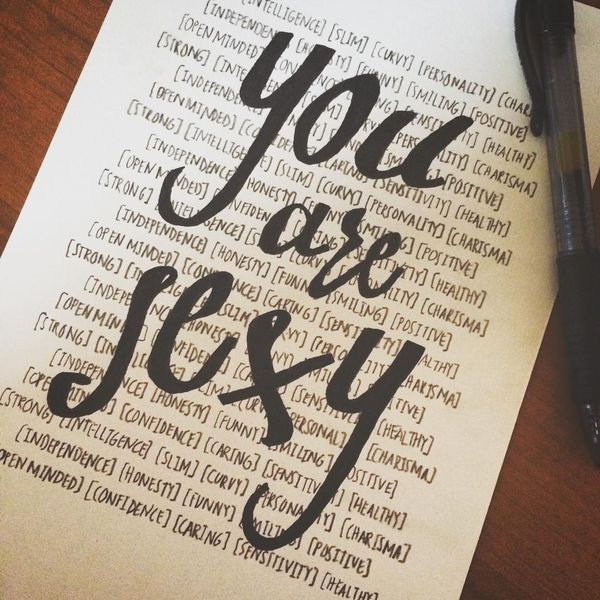 you
are
sexy
[INTELLIGENCE] [SLIM] [CURVY] [PERSONALITY] [CHAR
[INDEPENDENCE] [FUNNY] [SMILING] [POSITIVE]
[OPEN MINDED] [SENSITIVITY] [HEALTHY]
[STRONG] [INTELLIGENCE] [PERSONALITY] [CHARISMA]
[INDEPENDENCE] [SMILING] [POSITIVE]
[OPEN MINDED] [CONFIDENCE] [CARING] [SENSITIVITY] [HEALTHY]
[STRONG] [INTELLIGENCE] [SLIM] [CURVY] [PERSONALITY] [CHARISMA]
[INDEPENDENCE] [HONESTY] [FUNNY] [SMILING] [POSITIVE]
[OPEN MINDED] [CONFIDENCE] [SENSITIVITY] [HEALTHY]
[STRONG] [INTELLIGENCE] [SLIM] [CURVY] [PERSONALITY] [CHARISMA]
[INDEPENDENCE] [HONESTY] [FUNNY] [SMILING] [POSITIVE]
[OPEN MINDED] [CONFIDENCE] [CARING] [SENSITIVITY] [HEALTHY]
[STRONG] [INTELLIGENCE] [SLIM] [CURVY] [PERSONALITY] [CHARISMA]
[INDEPENDENCE] [HONESTY] [FUNNY] [SMILING] [POSITIVE]
[OPEN MINDED] [CONFIDENCE] [SENSITIVITY] [HEALTHY]
[STRONG] [INTELLIGENCE] [SLIM] [CURVY] [PERSONALITY] [CHARISMA]
[INDEPENDENCE] [HONESTY] [FUNNY] [SMILING] [POSITIVE]
[OPEN MINDED] [CONFIDENCE] [CARING] [SENSITIVITY] [HEALTHY]
[STRONG] [INTELLIGENCE] [SLIM] [CURVY] [PERSONALITY] [CHARISMA]
[INDEPENDENCE] [HONESTY] [FUNNY] [SMILING] [POSITIVE]
[OPEN MINDED] [CONFIDENCE] [CARING] [SENSITIVITY] [HEALTHY]